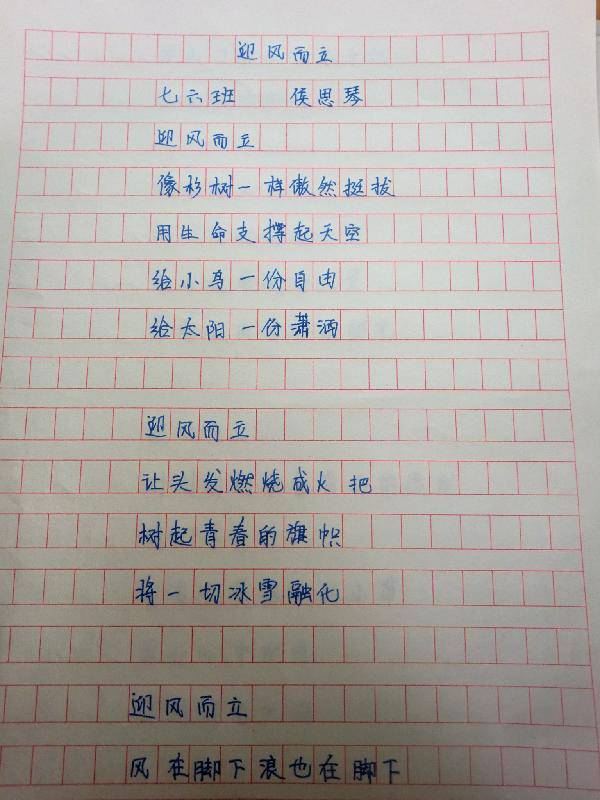 迎风而立
七六班 侯思琴
迎风而立
像杉树一样傲然挺拔
用生命支撑起天空
给小鸟一份自由
给太阳一份潇洒
迎风而立
让头发燃烧成火把
树起青春的旗帜
将一切冰雪融化
迎风而立
风在脚下浪也在脚下